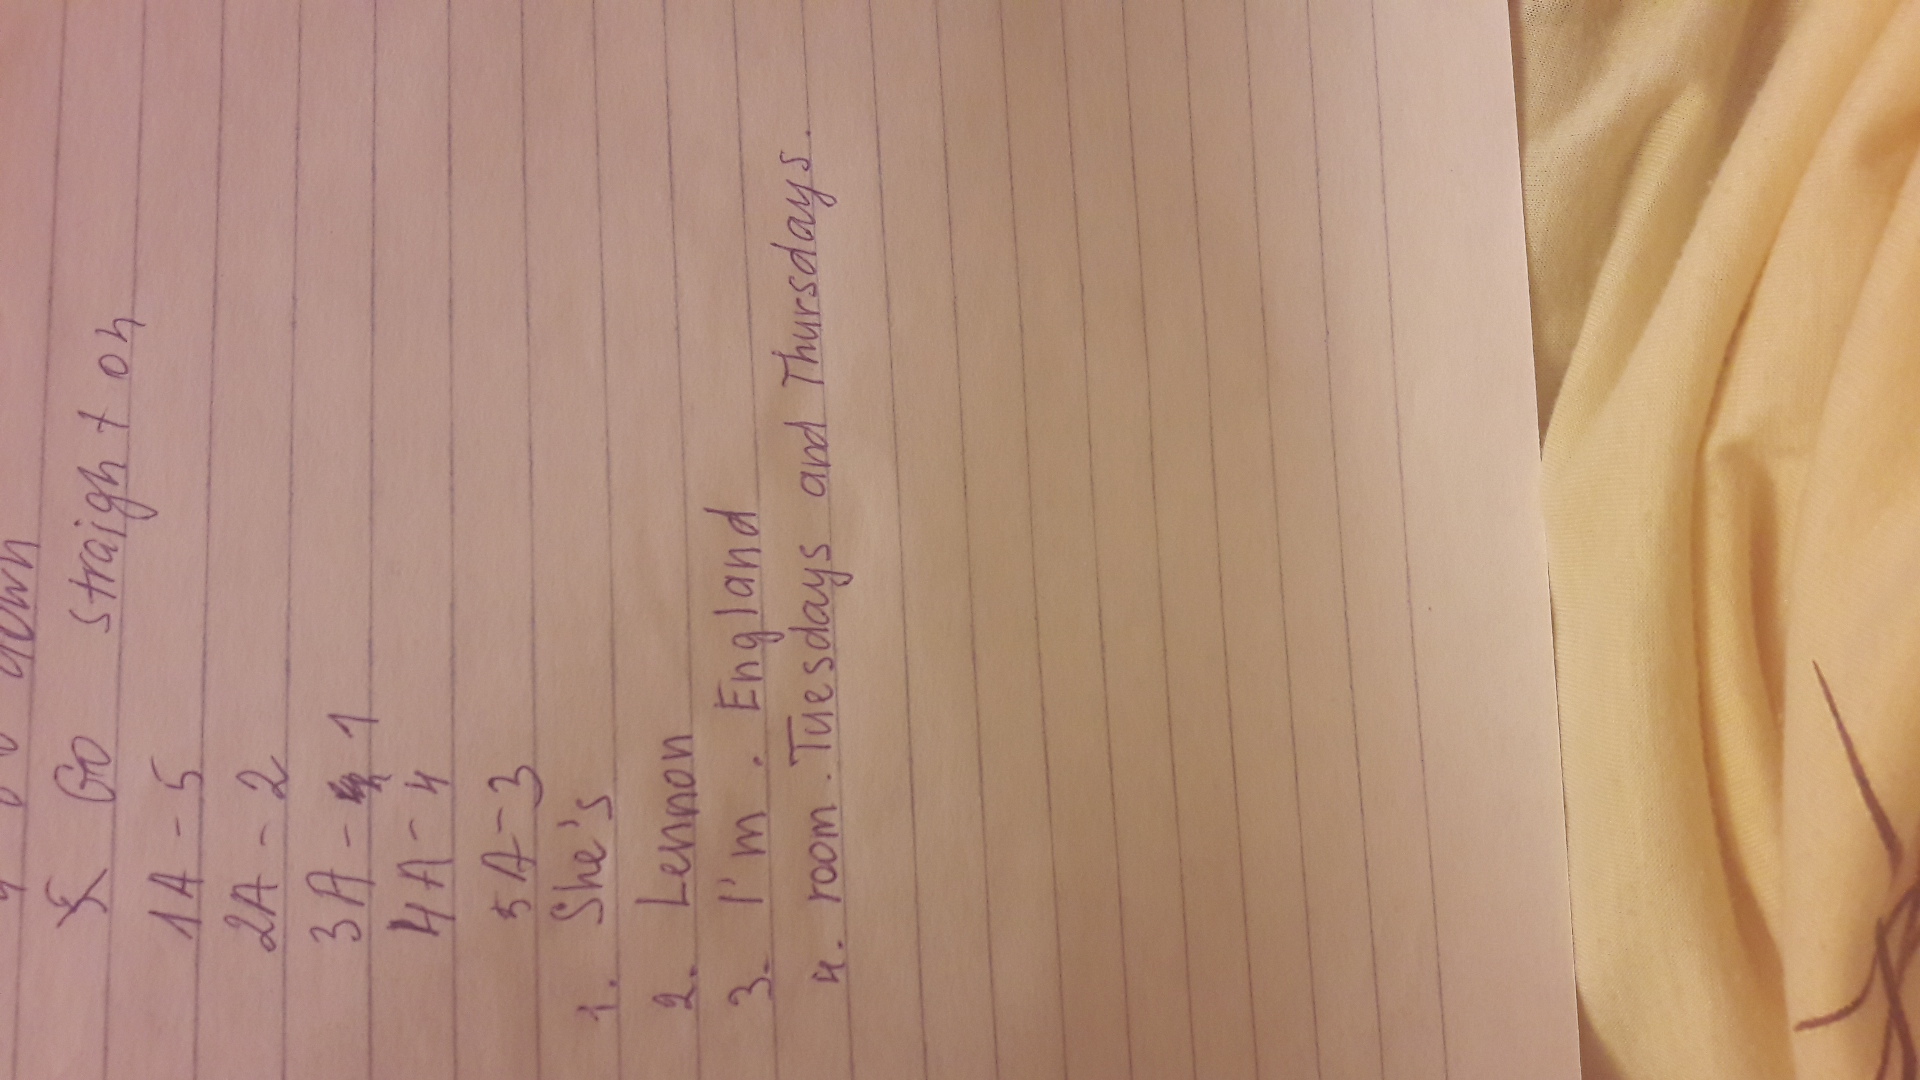 down
5 Go straight on
1A - 5
2A - 2
3A - 1
4A - 4
5A - 3
1. She's
2. Lennon
3. I'm. England
4. room. Tuesdays and Thursdays.